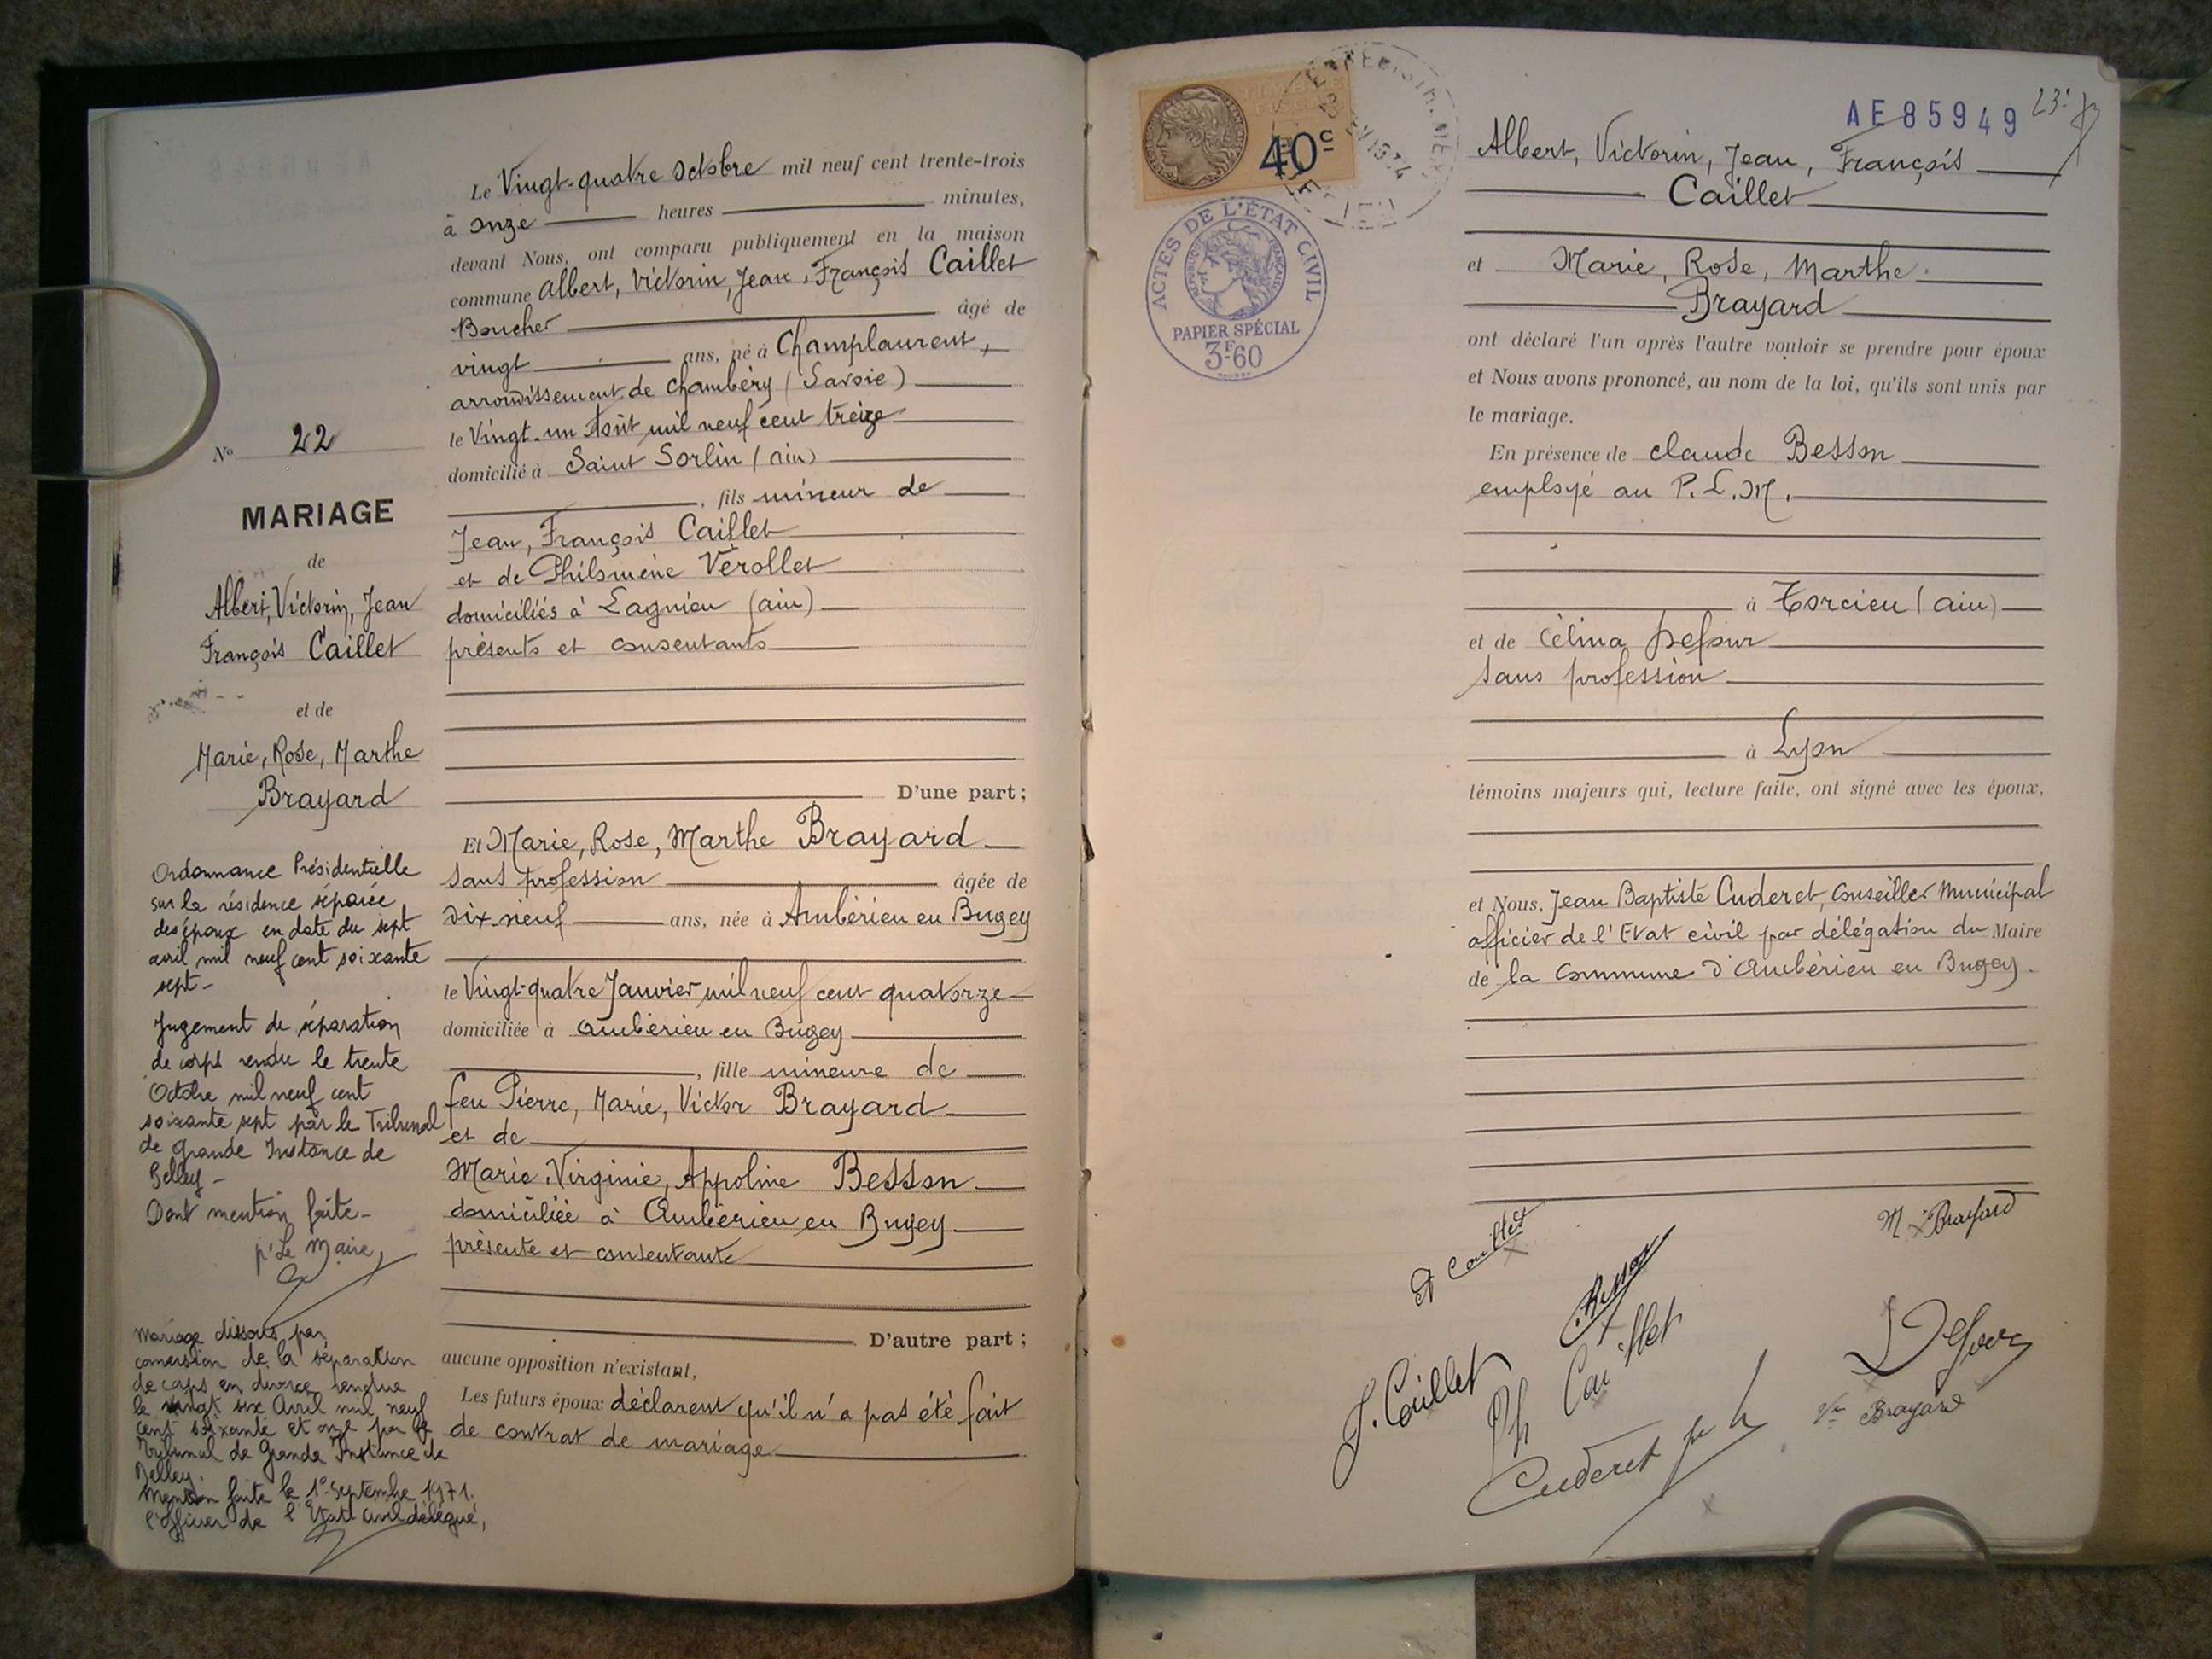 N° 22
MARIAGE
de
Albert, Victorin, Jean
François Caillet
et de
Marie, Rose, Marthe
Brayard
Ordonnance Présidentielle
sur la résidence séparée
des époux en date du sept
avril mil neuf cent soixante
sept -
Jugement de séparation
de corps rendu le trente
Octobre mil neuf cent
soixante sept par le Tribunal
de Grande Instance de
Belley -
Dont mention faite -
p' Le Maire,
Mariage dissous par
conversion de la séparation
de corps en divorce rendue
le vingt six Avril mil neuf
cent soixante et onze par le
Tribunal de Grande Instance de
Belley.
Mention faite le 1° Septembre 1971.
l'Officier de l'Etat Civil délégué,
Le Vingt-quatre Octobre mil neuf cent trente-trois
à onze heures minutes,
devant Nous, ont comparu publiquement en la maison
commune Albert, Victorin, Jean, François Caillet
Boucher âgé de
vingt ans, né à Champlaurent,
arrondissement de Chambéry (Savoie)
le Vingt-un Août mil neuf cent treize
domicilié à Saint Sorlin (ain)
, fils mineur de
Jean, François Caillet
et de Philomène Vérollet
domiciliés à Lagnieu (ain)
présents et consentants
D'une part;
Et Marie, Rose, Marthe Brayard
sans profession âgée de
dix-neuf ans, née à Ambérieu en Bugey
le Vingt-quatre Janvier mil neuf cent quatorze
domiciliée à Ambérieu en Bugey
, fille mineure de
feu Pierre, Marie, Victor Brayard
et de
Marie, Virginie, Appoline Besson
domiciliée à Ambérieu en Bugey
présente et consentante
D'autre part;
aucune opposition n'existant,
Les futurs époux déclarent qu'il n'a pas été fait
de contrat de mariage
40c
ACTES DE L'ÉTAT CIVIL
PAPIER SPÉCIAL
3F60
AE85949
Albert, Victorin, Jean, François
Caillet
et Marie, Rose, Marthe
Brayard
ont déclaré l'un après l'autre vouloir se prendre pour époux
et Nous avons prononcé, au nom de la loi, qu'ils sont unis par
le mariage.
En présence de Claude Besson
employé au P.L.M.
à Torcieu (ain)
et de Célina Defour
sans profession
à Lyon
témoins majeurs qui, lecture faite, ont signé avec les époux,
et Nous, Jean Baptiste Cuderet, Conseiller Municipal
officier de l'Etat civil par délégation du Maire
de la Commune d'Ambérieu en Bugey.
A Caillet
M Brayard
C. Besson
J. Caillet
Ph Caillet
Defour
Vve Brayard
Cuderet